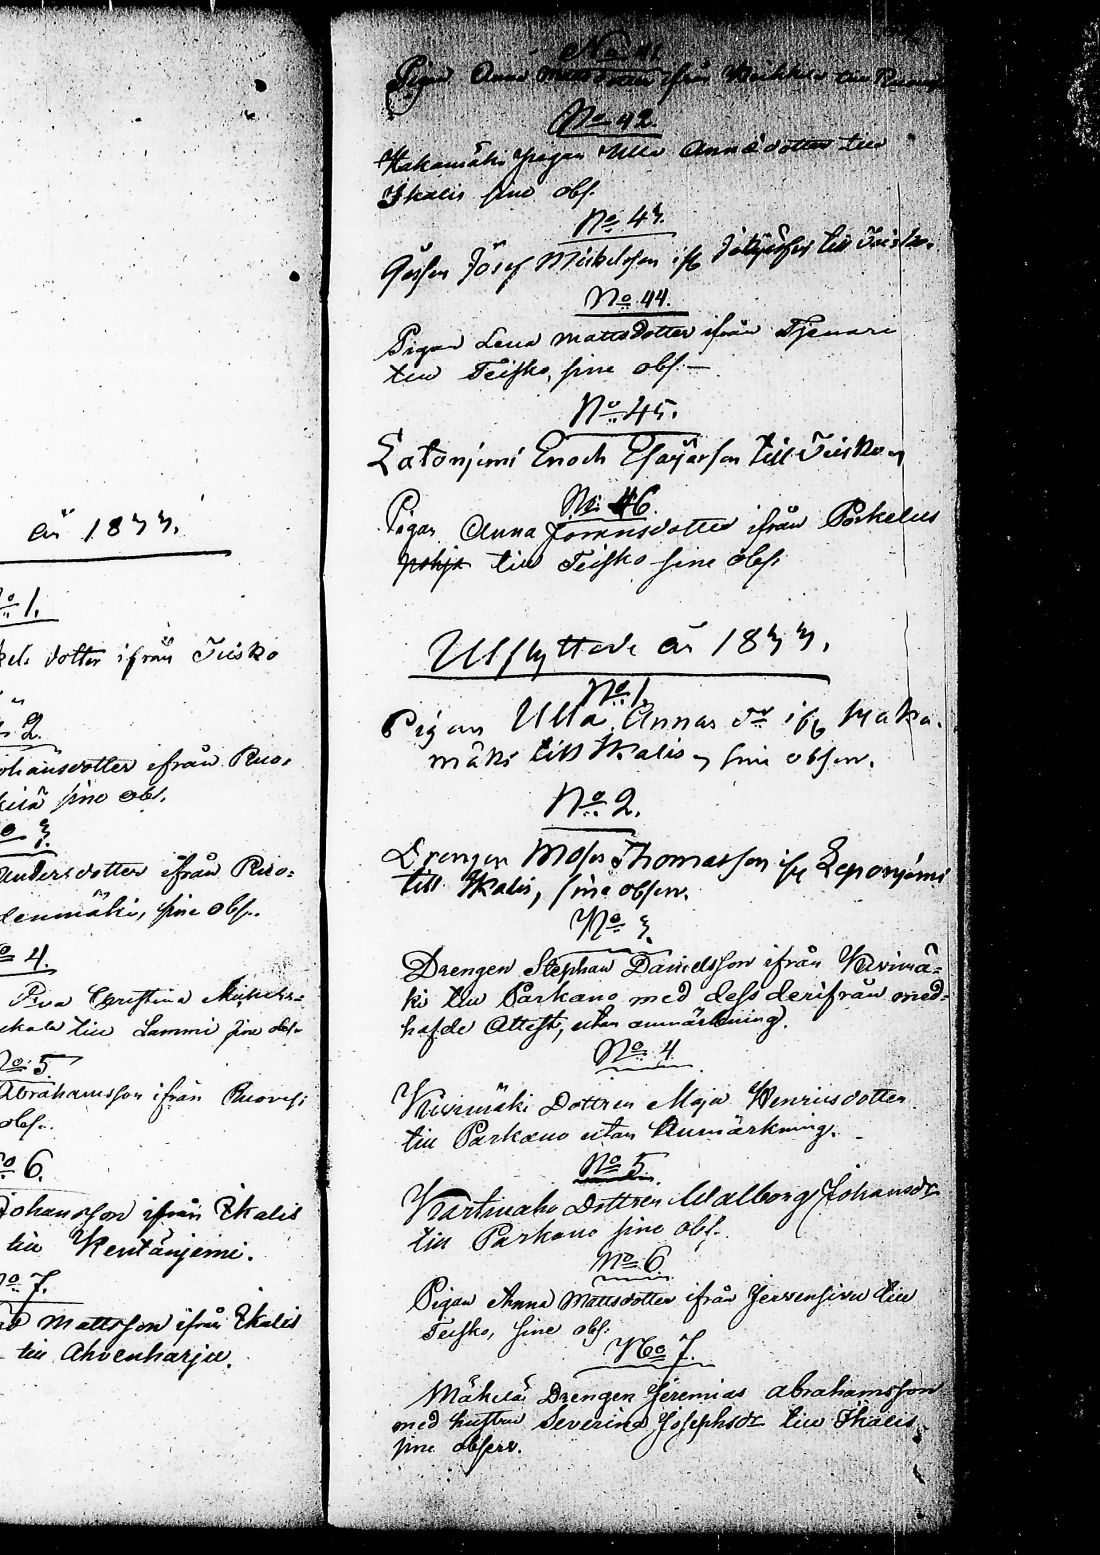 år 1833.
No 1.
dotter ifrån Teisko
2.
ohansdotter ifrån Ruo-
sine obs.
No 3.
Andersdotter ifrån Ruo-
lenmäki, sine obs..
No 4.
Christina Mickels-
till Lammi sine obs.
No 5
Abrahamsson ifrån Ruovesi
obs..
No 6.
Johansson ifrån Ikalis
till Kentänjemi.
No 7.
Mattsson ifrån Ikalis
till Ahvenharju.
No 41
Pigan Anna Mattsdotter ifrån
No 42.
Kakamäki pigan Ulla Annædotter till
Ikalis sine obs.
No 43.
Josef Mickelsson ifr till Teisko.
No 44.
Pigan Lena Mattsdotter ifrån Tjenari
till Teisko, sine obs. —
No 45.
Latonjemi Enoch Esaiasson till Teisko
No 46.
Pigan Anna ifrån Poikelus
pohja till Teisko sine obs.
Utflyttade år 1833.
No 1.
Pigan Ulla Annas dr ifr Kaka-
mäki till Ikalis sine obser.
No 2.
Drengen Moses Thomasson ifr Leponjemi
till Ikalis, sine obser.
No 3.
Drengen Stephan Danielsson ifrån Kivimä-
ki till Parkano med dess derifrån med-
hafde Attest, utan anmärkning.
No 4
Kivimäki Dottren Maja Henricsdotter
till Parkano utan Anmärkning.
No 5.
Dottren Walborg Johansdr
till Parkano sine obs.
No 6
Pigan Anna Mattsdotter ifrån Jervensivu till
Teisko, sine obs.
No 7.
Mäkelä Drengen Jeremias Abrahamsson
med hustru Severina Josephsdr till Ikalis
sine observ.